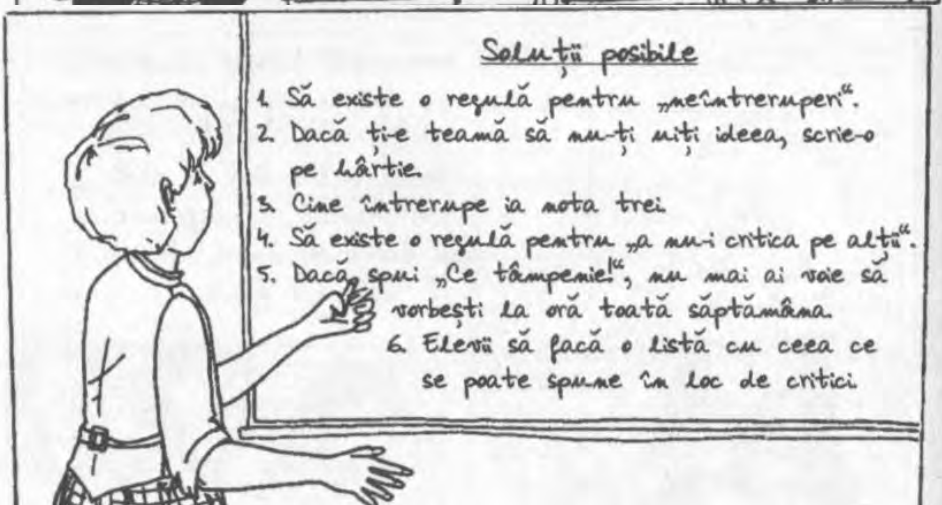 Soluţii posibile
1. Să existe o regulă pentru „neîntreruperi“.
2. Dacă ţi-e teamă să nu-ţi uiţi ideea, scrie-o
pe hârtie.
3. Cine întrerupe ia nota trei.
4. Să existe o regulă pentru „a nu-i critica pe alţii“.
5. Dacă spui „Ce tâmpenie!“, nu mai ai voie să
vorbeşti la oră toată săptămâna.
6. Elevii să facă o listă cu ceea ce
se poate spune în loc de critici.